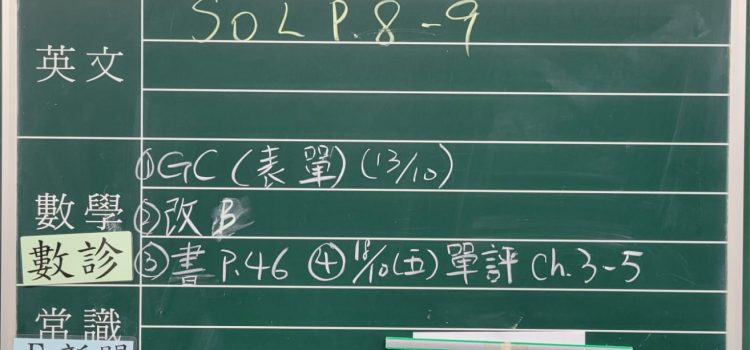 SOL P.8-9
英文
①GC (表單) (13/10)
數學 ②改B
數診 ③書 P.46 ④18/10(五)單評 Ch.3-5
常識